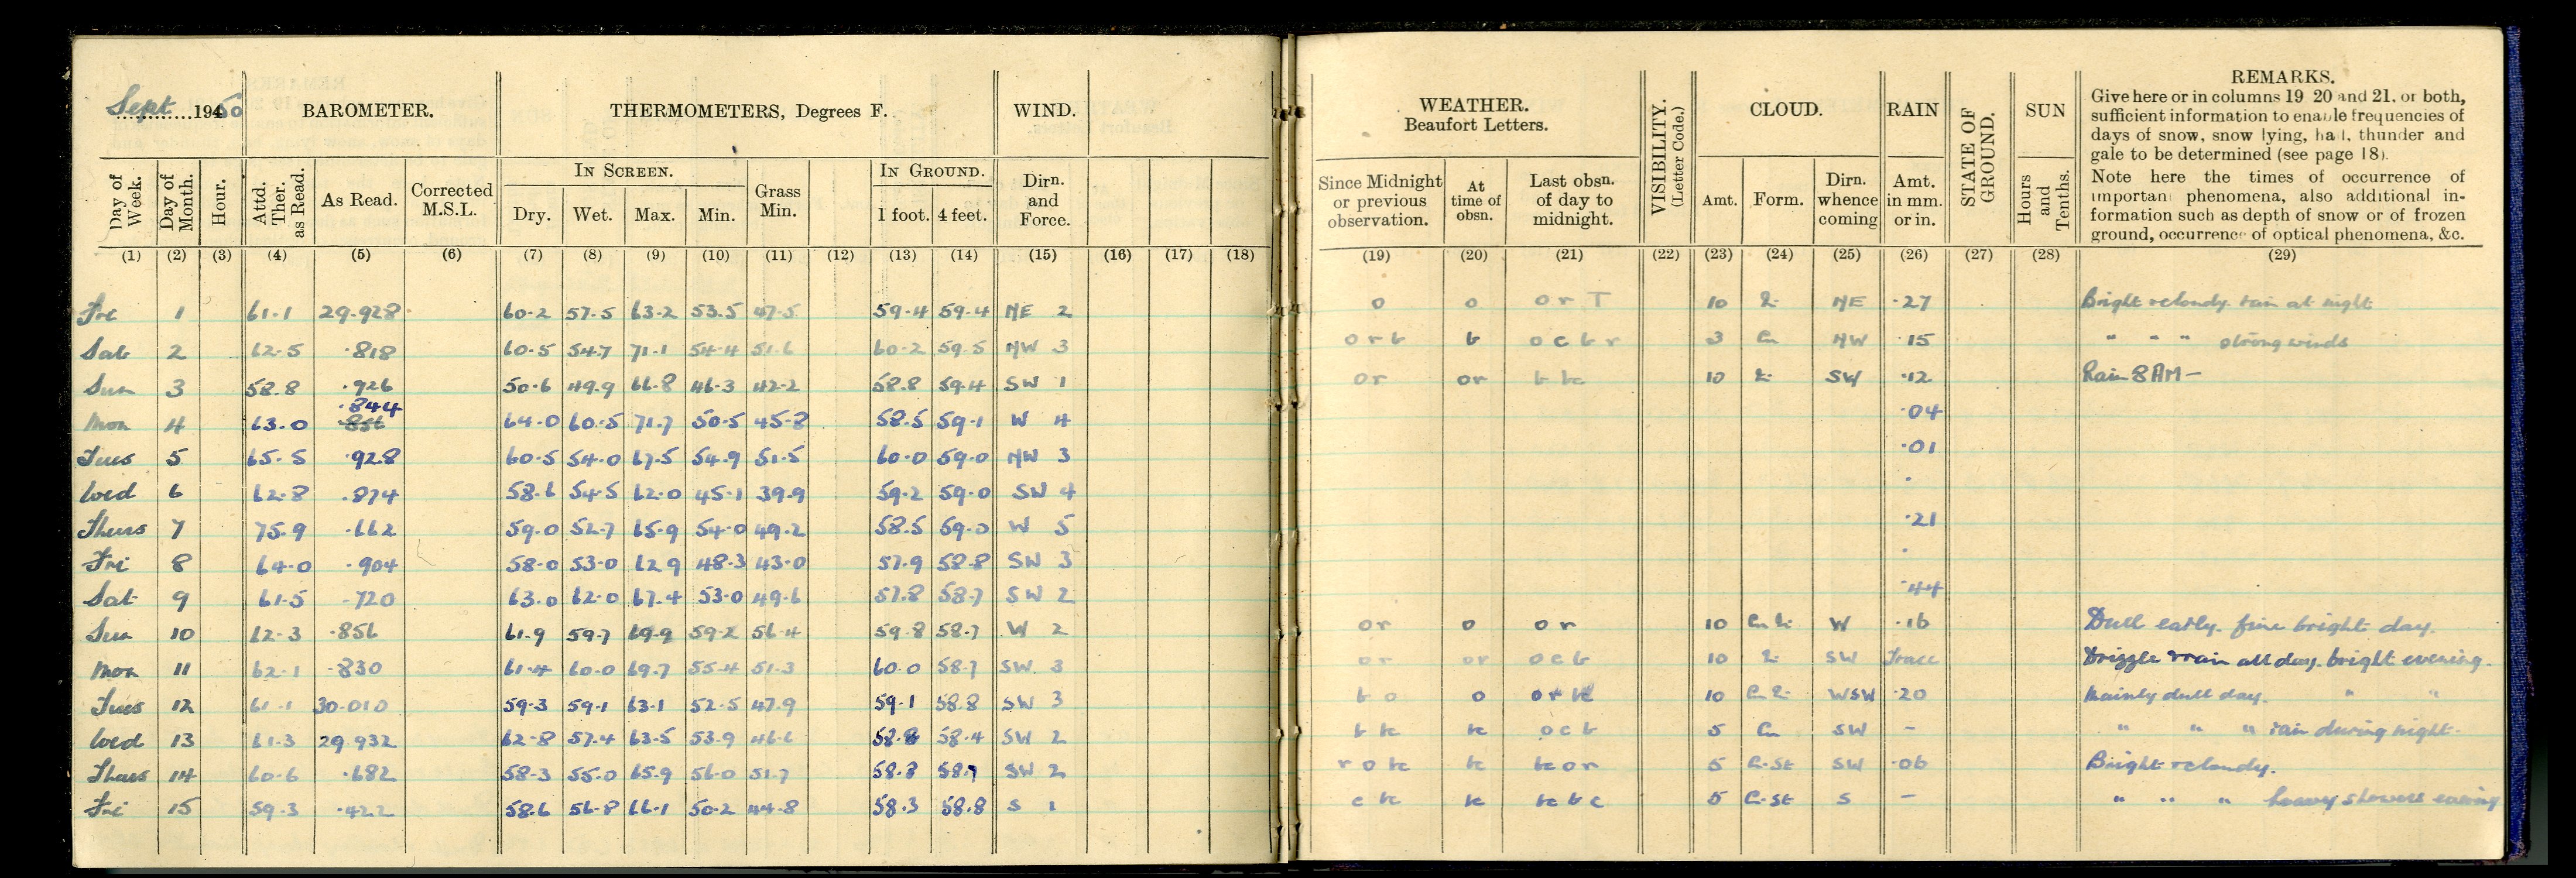 Sept 1950
BAROMETER.
THERMOMETERS, Degrees F.
WIND.
WEATHER.
Beaufort Letters.
VISIBILITY.
(Letter Code.)
CLOUD.
RAIN
STATE OF
GROUND.
SUN
REMARKS.
Give here or in columns 19 20 and 21, or both,
sufficient information to enable frequencies of
days of snow, snow lying, hail, thunder and
gale to be determined (see page 18).
Note here the times of occurrence of
important phenomena, also additional in-
formation such as depth of snow or of frozen
ground, occurrence of optical phenomena, &c.
Day of Week.
Day of Month.
Hour.
Attd. Ther. as Read.
As Read.
Corrected M.S.L.
IN SCREEN.
Dry. Wet. Max. Min.
Grass Min.
IN GROUND.
1 foot. 4 feet.
Dirn. and Force.
Since Midnight or previous observation.
At time of obsn.
Last obsn. of day to midnight.
Amt. Form. Dirn. whence coming
Amt. in mm. or in.
Hours and Tenths.
(1) (2) (3) (4) (5) (6) (7) (8) (9) (10) (11) (12) (13) (14) (15) (16) (17) (18) (19) (20) (21) (22) (23) (24) (25) (26) (27) (28) (29)
Fri 1 61.1 29.928 60.2 57.5 63.2 53.5 47.5 59.4 59.4 NE 2 o o o r T 10 NE .27 Bright & cloudy rain at night
Sat 2 62.5 .818 60.5 54.7 71.1 54.4 51.6 60.2 59.5 NW 3 o r b b o c b r 3 Cu NW .15 " " " strong winds
Sun 3 58.8 .926 50.6 49.9 66.8 46.3 42.2 58.8 59.4 SW 1 or or b bc 10 SW .12 Rain 8 AM –
.844
Mon 4 63.0 .856 64.0 60.5 71.7 50.5 45.8 58.5 59.1 W 4 .04
Tues 5 65.5 .928 60.5 54.0 67.5 54.9 51.5 60.0 59.0 NW 3 .01
Wed 6 62.8 .874 58.6 54.5 62.0 45.1 39.9 59.2 59.0 SW 4 .
Thurs 7 75.9 .662 59.0 52.7 65.9 54.0 49.2 58.5 59.0 W 5 .21
Fri 8 64.0 .904 58.0 53.0 62 9 48.3 43.0 57.9 58.8 SW 3 .
Sat 9 61.5 .720 63.0 62.0 67.4 53.0 49.6 57.8 58.7 SW 2 .44
Sun 10 62.3 .856 61.9 59.7 69.9 59.2 56.4 59.8 58.7 W 2 or o or 10 W .16 Dull early. fine bright day.
Mon 11 62.1 .830 61.4 60.0 69.7 55.4 51.3 60.0 58.7 SW 3 or or o c b 10 SW Trace Drizzle & rain all day. bright evening.
Tues 12 61.1 30.010 59.3 59.1 63.1 52.5 47.9 59.1 58.8 SW 3 b o o 10 WSW .20 Mainly dull day. " "
Wed 13 61.3 29.932 62.8 57.4 63.5 53.9 46.6 58.8 58.4 SW 2 b bc bc o c b 5 Cu SW – " " " rain during night.
Thurs 14 60.6 .682 58.3 55.0 65.9 56.0 51.7 58.8 58.7 SW 2 r o bc bc bc o r 5 SW .06 Bright & cloudy.
Fri 15 59.3 .422 58.6 56.8 66.1 50.2 44.8 58.3 58.8 S 1 c bc bc bc b c 5 S – " " " heavy showers evening